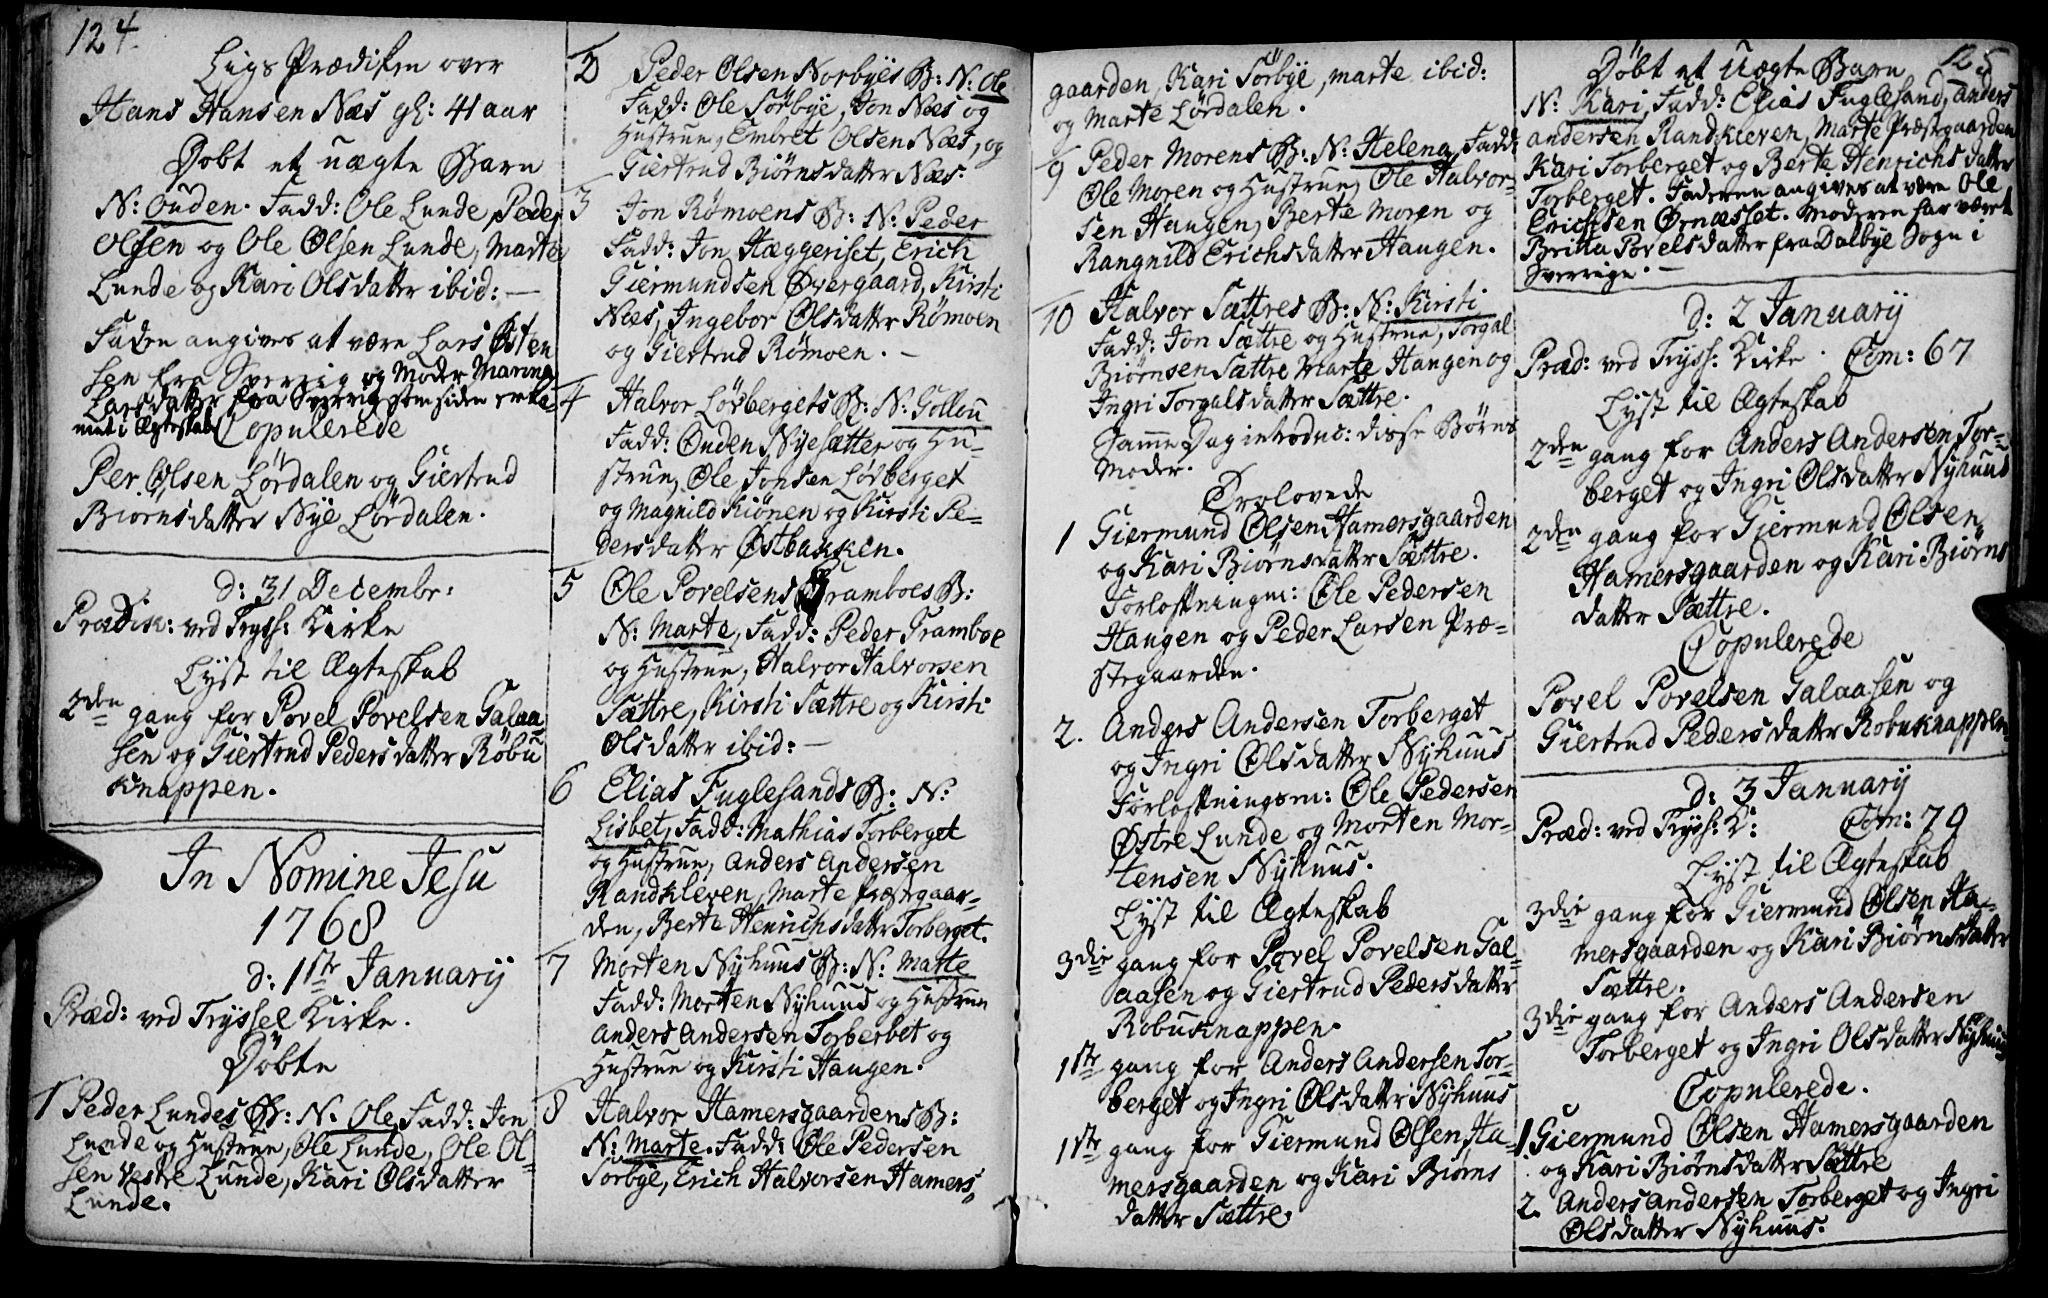 124.
Liigs Prædiken over
Hans Hansen Næs gl: 41 aar
Döbt et uægte Barn
N: Ouden. Fadd: Ole Lunde, Peder
Olsen og Ole Olsen Lunde, Marte
Lunde og Kari Olsdatter ibid: —
Faderen angives at være Lars Østen
sen fra Sverrig og Moder Marina
Larsdatter fra Sverrig som siden erke-
met i Ægteskab
Copulerede
Per Olsen Lördalen og Giertrud
Biörnsdatter Nye Lördalen.
d: 31 Decembr:
Prædik: ved Tryss: Kirke
Lyst til Ægteskab
2den gang for Povel Povelsen Galaa
sen og Giertrud Pedersdatter Röbu
knappen.
In Nomine Jesu
1768
d: 1ste Januarij
Præd: ved Tryssel Kirke.
Döbte
1 Peder Lundes B: N: Ole, Fadd: Jon
Lunde og Hustrue, Ole Lunde, Ole Ol-
sen Vestre Lunde, Kari Olsdatter
Lunde.
2 Peder Olsen Norbyes B: N: Ole
Fadd: Ole Sörbye, Jon Næs og
Hustrue, Embret Olsen Næs, og
Giertrud Biörnsdatter Næs.
3 Jon Römoens B: N: Peder
Fadd: Jon Hæggeriset, Erich
Giermundsen Övergaard, Kirsti
Næs, Ingebor Olsdatter Römoen
og Giertrud Römoen. —
4 Halvor Lövbergets B: N: Gollou
Fadd: Ouden Nyesætter og Hu-
strue, Ole Jonsen Lövberget
og Magnild Kiönen og Kirsti Pe-
dersdatter Östbakken.
5 Ole Povelsens Gramboes B:
N: Marte, Fadd: Peder Gramboe
og Hustrue, Halvor Halvorsen
Sættre, Kirsti Sættre og Kirsti
Olsdatter ibid: —
6 Elias Fuglesands B: N:
Lisbet, Fadd: Mathias Torberget
og Hustrue, Anders Andersen
Randkleven, Marte Præstgaar-
den, Berte Henrichsdatter Torberget.
7 Morten Nyhuus B: N: Marte
Fadd: Morten Nyhuus og Hustrue
Anders Andersen Torberbet og
Hustrue og Kirsti Haugen.
8 Halvor Hamersgaardens B:
N: Marte. Fadd: Ole Pedersen
Sorbye, Erich Halvorsen Hamers-
gaarden, Kari Sörbye, Marte ibid:
og Marte Lördalen.
9 Peder Morens B: N: Helena, Fadd:
Ole Moren og Hustrue, Ole Halvor-
sen Haugen, Berte Moren og
Rangnild Erichsdatter Haugen.
10 Halvor Sættres B: N: Kirsti
Fadd: Jon Sættre og Hustrue, Torgal
Biörnsen Sættre Marte Haugen og
Ingri Torgalsdatter Sættre.
Samme Dag introduc: disse Börns
Moder.
Trolovede
1 Giermund Olsen Hamersgaarden
og Kari Biörnsdatter Sættre.
Forlofningsm: Ole Pedersen
Haugen og Peder Larsen Præ-
stegaarden.
2. Anders Andersen Torberget
og Ingri Olsdatter Nyhuus
Forlofningsm: Ole Pedersen
Östre Lunde og Morten Mor-
tensen Nyhuus.
Lyst til Ægteskab
3die gang for Povel Povelsen Gal-
aasen og Giertrud Pedersdatter
Robuknappen.
1ste gang for Anders Andersen Tor-
berget og Ingri Olsdatter Nyhuus
1ste gang for Giermund Olsen Ha-
mersgaarden og Kari Biörns
datter Sættre.
125
Döbt et uægte Barn
N: Kari, Fadd: Elias Fuglesand, Anders
Andersen Randkleven, Marte Præstgaarden
Kari Torberget og Berte Henrichsdatter
Torberget. Faderen angives at være Ole
Erichsen Örnæsset. Moderen har været
Britta Povelsdatter fra Dalbye Sogn i
Sverrige. —
d: 2 Januarij
Præd: ved Tryss: Kirke. Com: 67
Lyst til Ægteskab
2den gang for Anders Andersen Tor-
berget og Ingri Olsdatter Nyhuus
2den gang for Giermund Olsen
Hamersgaarden og Kari Biörns
datter Sættre.
Copulerede
Povel Povelsen Galaasen og
Giertrud Pedersdatter Robuknappen
d: 3 Januarij
Præd: ved Tryss: K: Com: 79
Lyst til Ægteskab
3die gang for Giermund Olsen Ha-
mersgaarden og Kari Biörnsdatter
Sættre.
3die gang for Anders Andersen
Torberget og Ingri Olsdatter Nyhuus
Copulerede.
1. Giermund Olsen Hamersgaarden
og Kari Biörnsdatter Sættre
2. Anders Andersen Torberget og Ingri
Olsdatter Nyhuus.